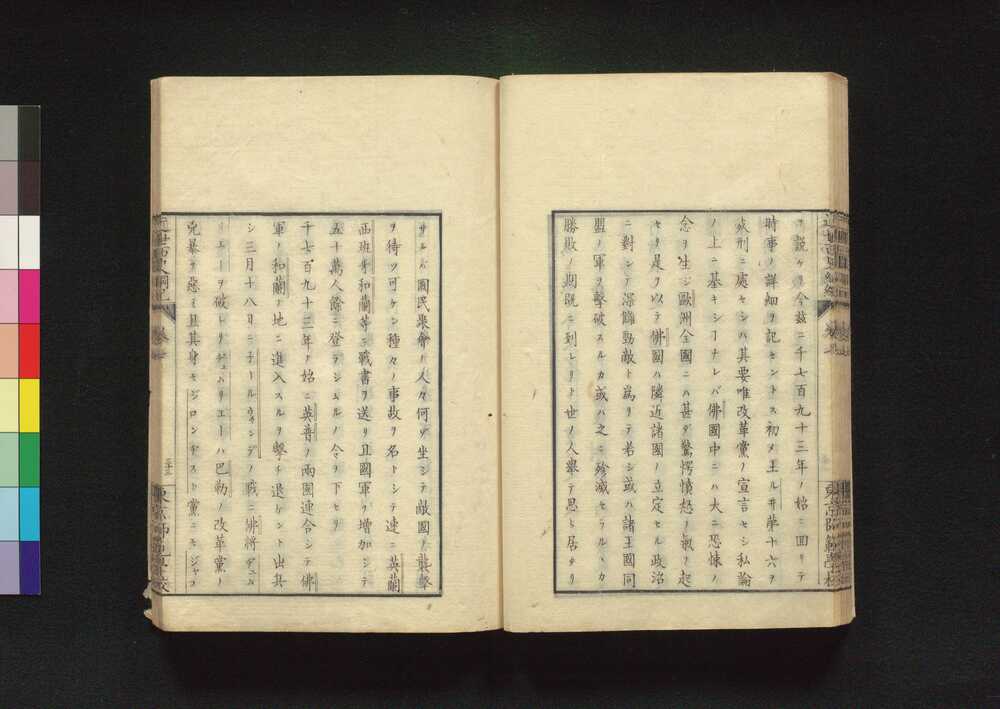 ヲ説ケリ今茲ニ千七百九十三年ノ始ニ回リテ
時事ノ詳細ヲ記セントス初メ王ル井第十六ヲ
死刑ニ處セシハ其要唯改革黨ノ宣言セシ私論
ノ上ニ基キシヿナレバ佛國中ニハ大ニ恐悚ノ
念ヲ生ジ歐洲全國ニハ甚ダ驚愕憤怒ノ氣ヲ起
セリ是ヲ以テ佛國ハ隣近諸國ノ立定セル政治
ニ對シテ深讎勁敵ト為リテ若シ或ハ諸王國同
盟ノ軍ヲ擊破スルカ或ハ之ニ殄滅セラルヽカ
勝敗ノ期既ニ到レリト世ノ人舉テ思ヒ居タリ
サルバ國民衆會ノ人々何ゾ坐シテ敵國ノ襲擊
ヲ待ツ可ケン種々ノ事故ヲ名トシテ速ニ英蘭
西班牙和蘭等ニ戰書ヲ送リ且國軍ヲ增加シテ
五十萬人餘ニ登ラシムルノ令ヲ下セリ
千七百九十三年ノ始ニ英普ノ兩國連合シテ佛
軍ノ和蘭ノ地ニ進入スルヲ擊チ退ケント出兵
シ三月十八日ニナールウィンデノ戰ニ佛將デュム
リエーヲ破レリデュムリエーハ巴勒ノ改革黨ノ
兇暴ヲ惡ミ且其身モジロンヂスト黨ニモジャコ
近世西史綱紀
卷之
東京師範學校